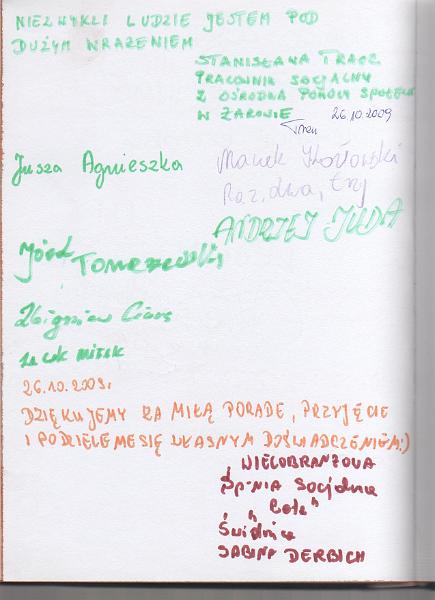 NIEZWYKLI LUDZIE JESTEM POD
DUŻYM WRAŻENIEM
STANISŁAWA TRACZ
PRACOWNIK SOCJALNY
Z OŚRODKA POMOCY SPOŁECZ
W ŻAROWIE
26.10.2009
Jusza Agnieszka
Marek Kozłowski
Raz, dwa, trzy
ANDRZEJ JUDA
Józef Tomczewski
Zbigniew
26.10.2009r.
DZIĘKUJEMY ZA MIŁĄ PORADE, PRZYJĘCIE
I PODZIELEME SIĘ WŁASNYM DOŚWIADCZENIEM:)
WIELOBRANŻOWA
Sp-NIA Socjalna
Świdnica
SABINA DERBICH